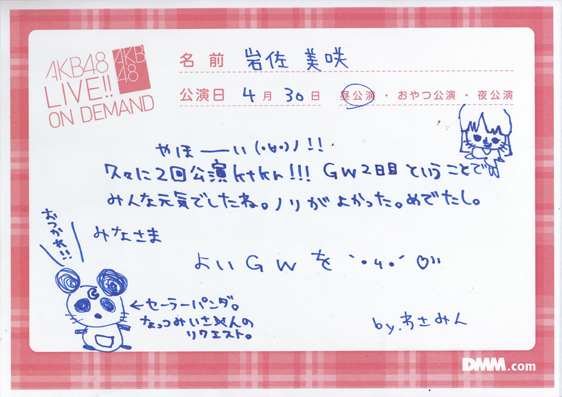 AKB48
LIVE!!
ON DEMAND
AKB
48
名前 岩佐 美咲
公演日 4月30日 昼公演・おやつ公演・夜公演
やほーい(・∀・)ノ!!
久々に2回公演ktkh!!! GW2日目ということで
みんな元気でしたね。ノリがよかった。めでたし。
みなさま
よいGWを
おつかれ!!
←セーラーパンダ。
なっつみいさんの
リクエスト。
by.わさみん
DMM.com